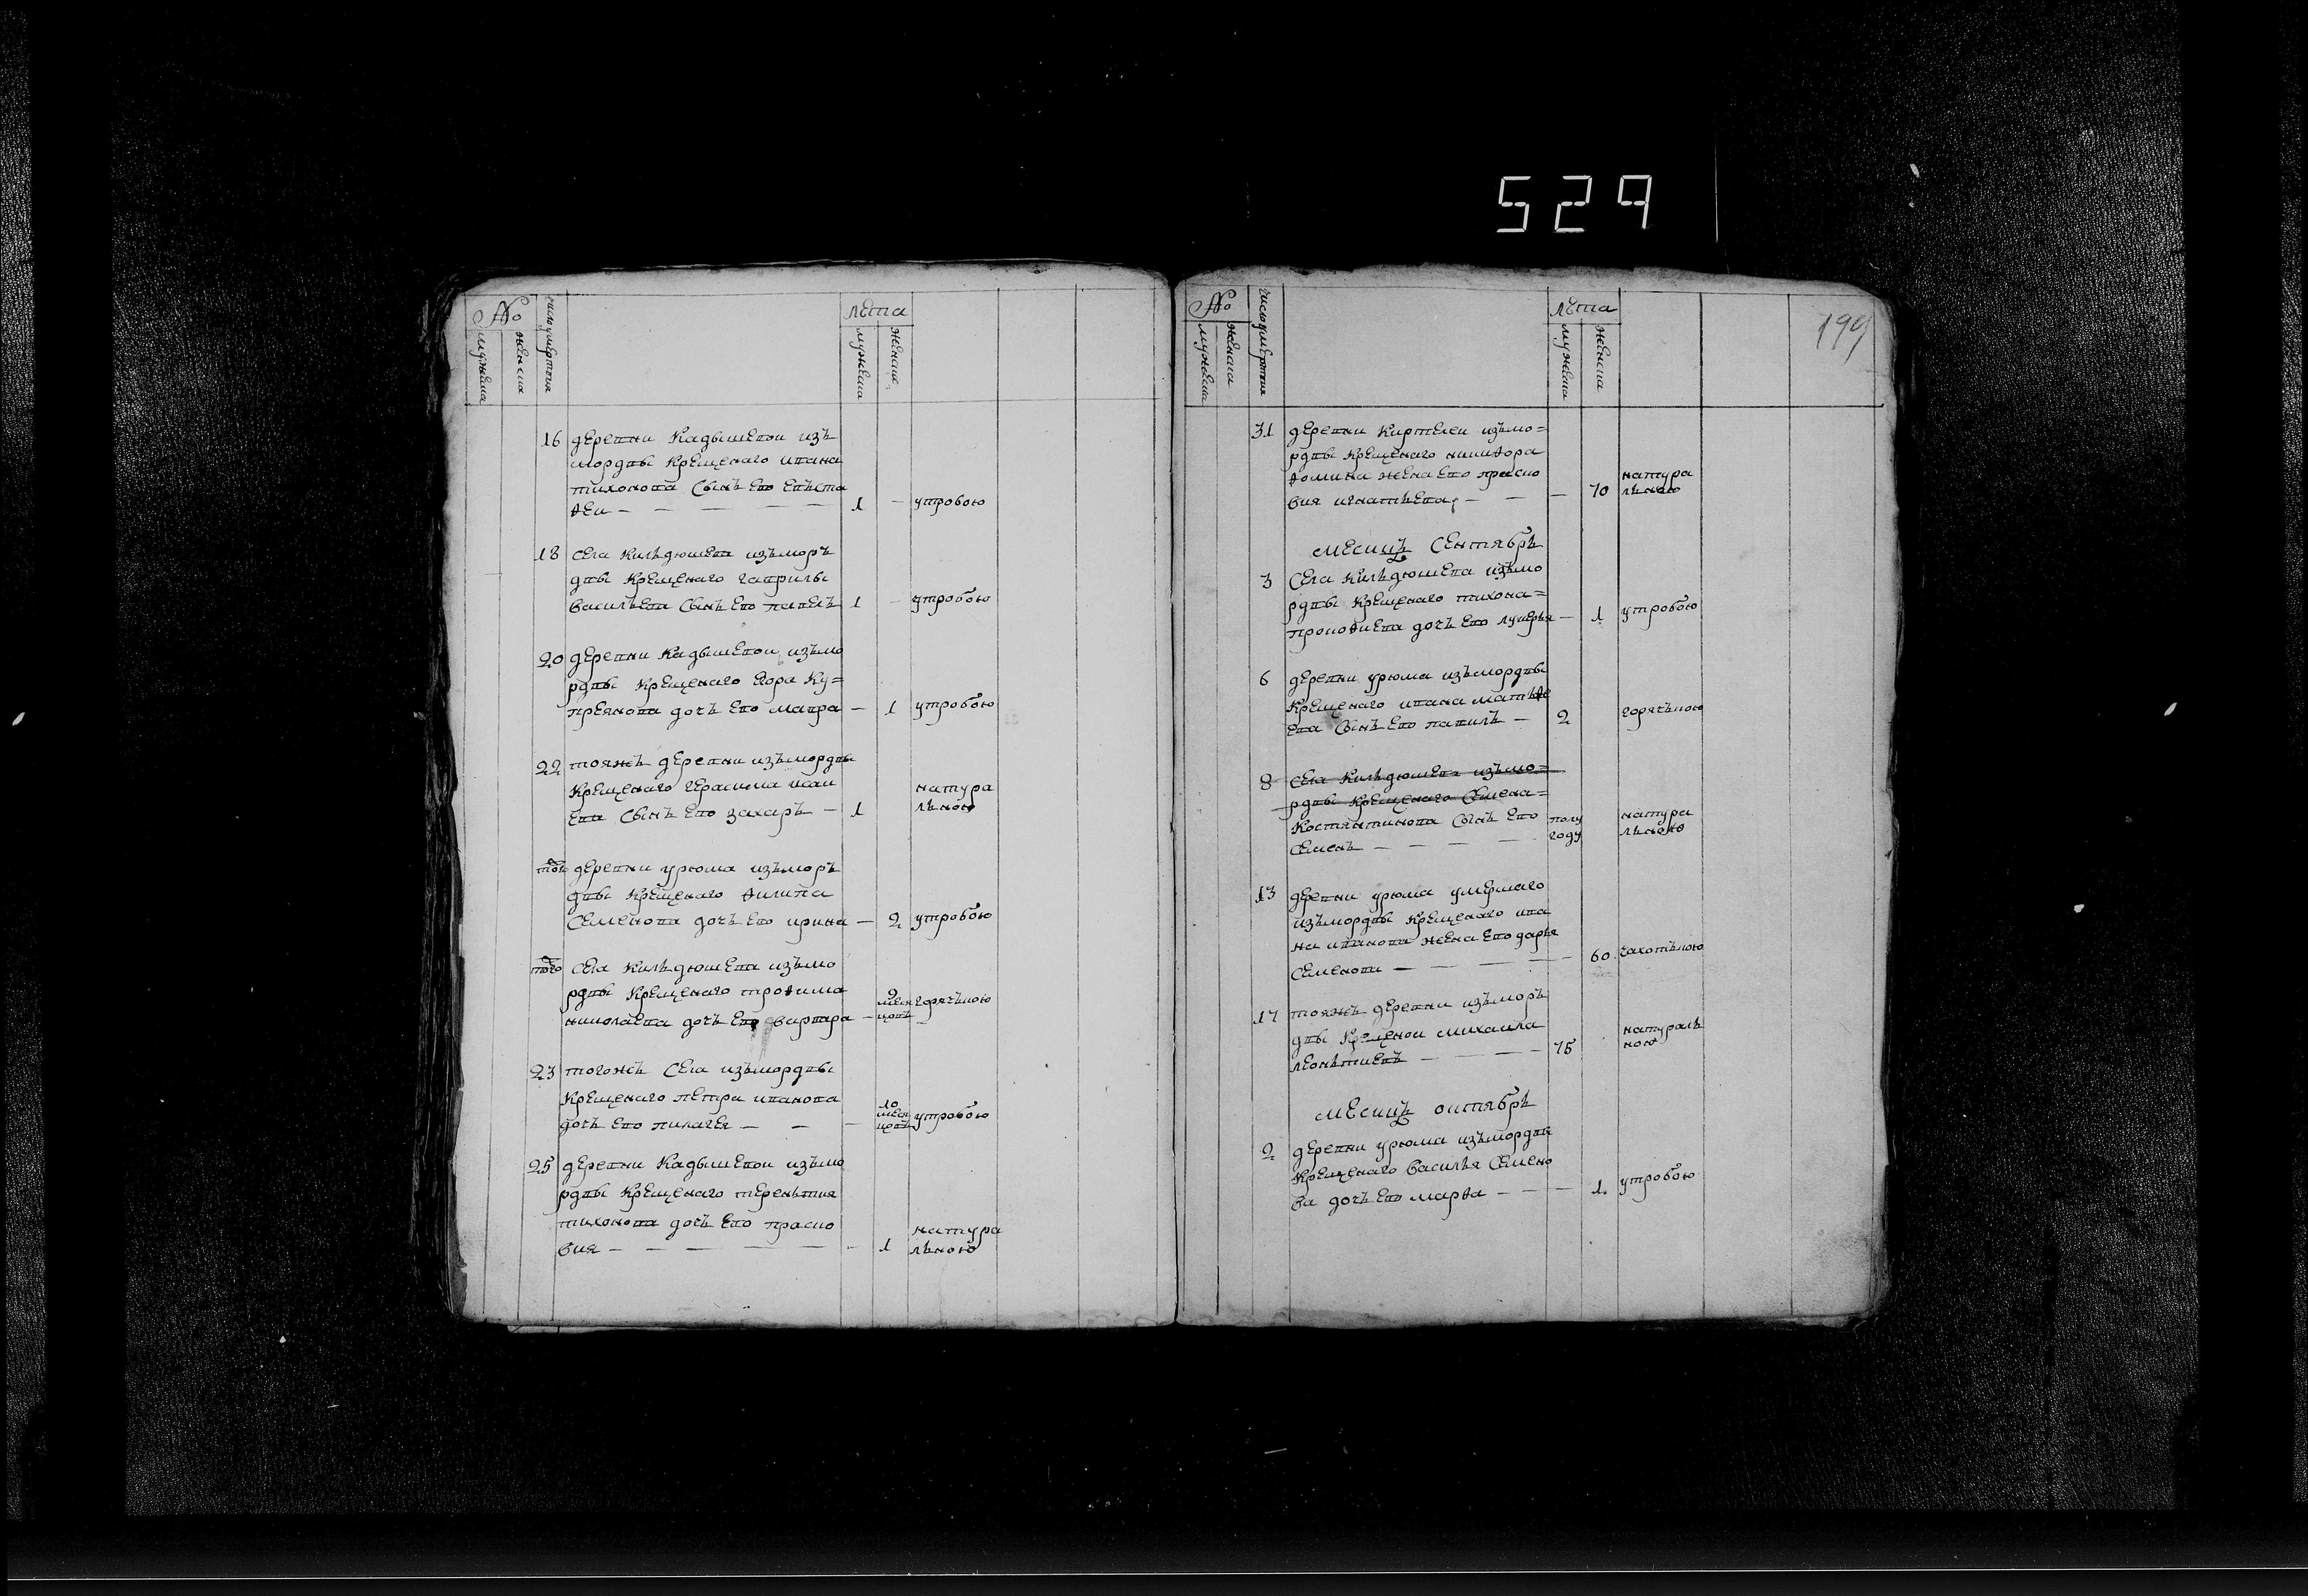 529
№
мужеска
женска
число умертвия
лѣта
мужеска
женска
16 деревни Кадышевои изъ
мордвы крещенаго ивана
тихонова сынъ его евъста
феи — — — — — 1 — утробою
18 села кильдюшева изъморъ
двы крещенаго гаврилы
васильева сынъ его павелъ 1 — утробою
20 деревни Кадышевои изъмо
рдвы крещенаго егора ку=
преянова дочь его мавра — 1 утробою
22 тояжъ деревни изъмордвы
крещенаго герасима исаи натура
ева сынъ его захаръ — 1 льною
тогъ деревни урюма изъморъ
двы крещенаго филипа
семенова дочь его ирина — 2 утробою
того села кильдюшева изъмо
рдвы крещенаго трофима 9
николаева дочь его варвара — меся горячьною
цовъ
23 тогожъ села изъмордвы
крещенаго петра иванова 10
дочь его пилагея — — — меся утробою
цовъ
25 деревни Кадышевои изъмо
рдвы крещенаго терентия
тихонова дочь его праско натура
вия — — — — — — 1 льною
199
№
мужеска
женска
число умертвия
лѣта
мужеска
женска
31 деревни киртелеи изъмо=
рдвы крещенаго никифора
фомина жена его праско натура
вия игнатьева — — — 70 льною
месицъ сентябрь
3 села кильдюшева изъмо
рдвы крещенаго тихона=
прокофиева дочь его лукерья — 1 утробою
6 деревни урюма изъмордвы
крещенаго ивана матьфе
ева сынъ его павилъ — 2 горячькою
8 села кильдюшева изъмо=
рдвы крещенаго семена=
костянтинова сынъ его полу натура
семенъ — — — — году льною
13 деревни урюма умершаго
изъмордвы крещенаго ива
на иванова жена его дарья
семенова — — — — 60 чахоткою
17 тояжъ деревни изъморъ
двы крещенои михаила натураль
леонтиевъ — — — — 75 ною
месицъ октябрь
2 деревни урюма изъмордвы
крещенаго василья семено
ва дочь его марфа — — — 1. утробою